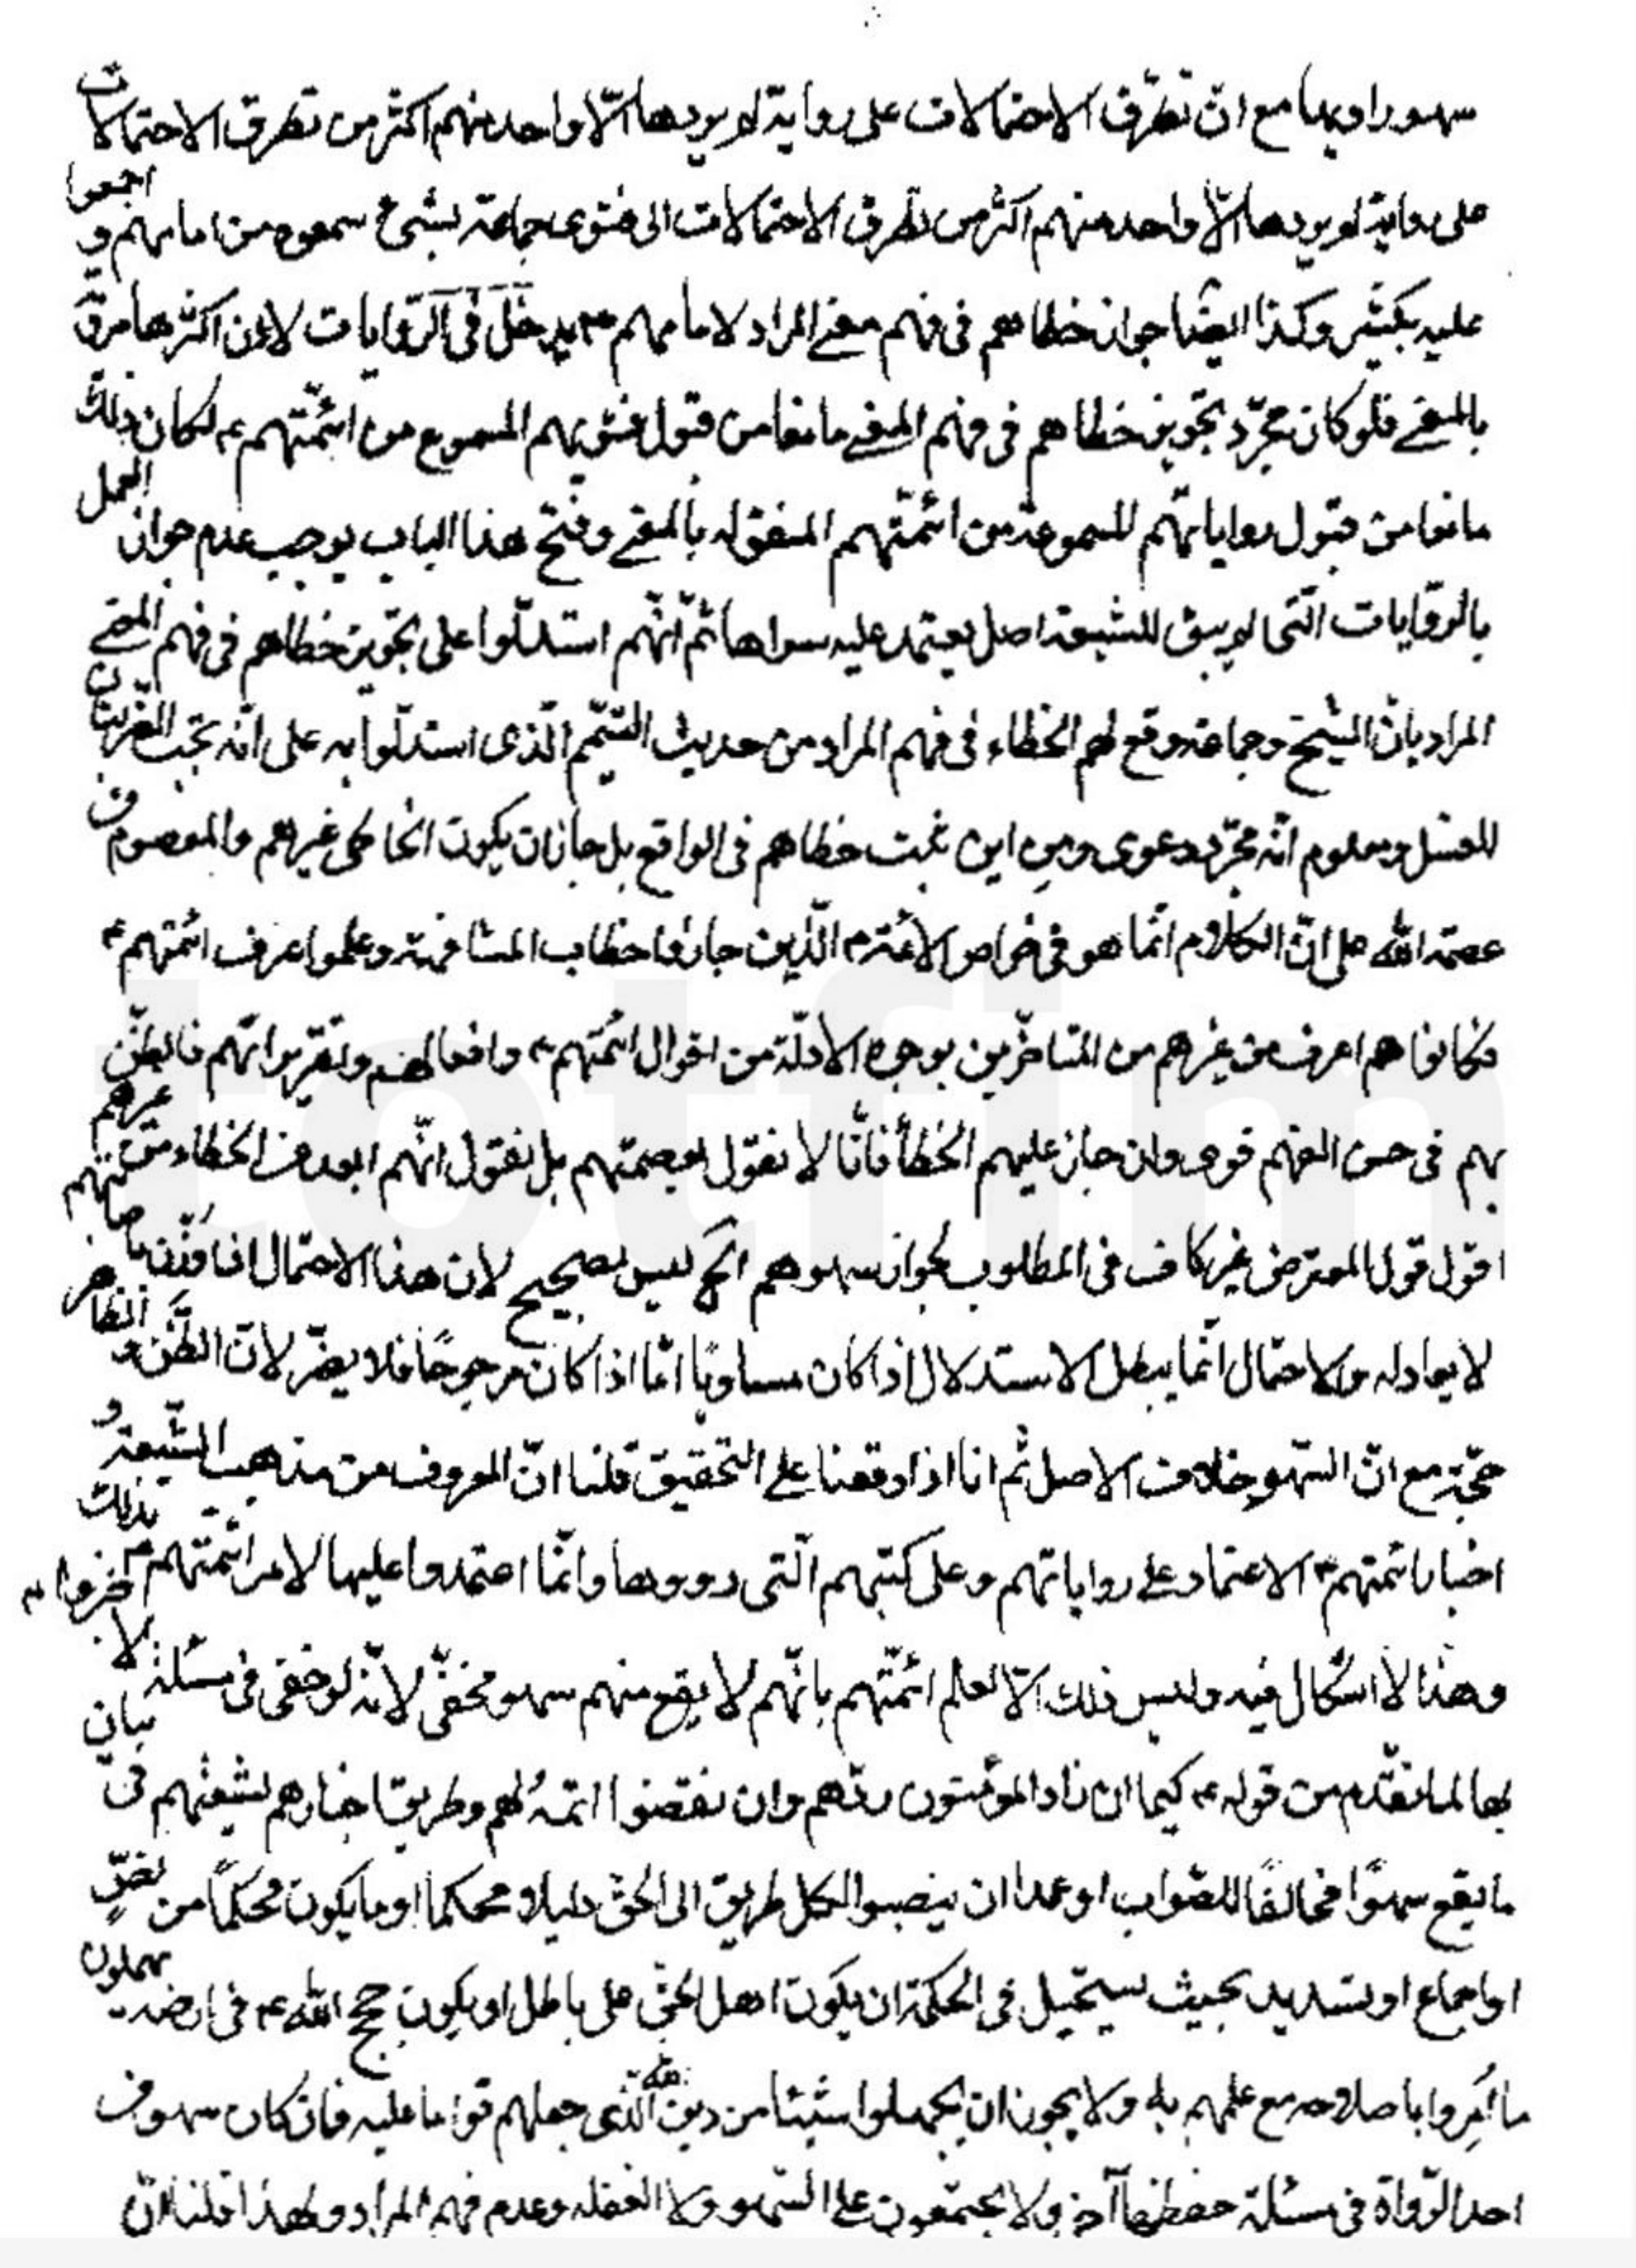 سهو راويها مع ان تطرّق الاحتمالات على رواية لم يروها الّا واحد منهم اكثر من تطرق الاحتمالات
على رواية لم يروها الّا واحد منهم اكثر من تطرق الاحتمالات الى فتوى جماعة بشئ سمعوه من امامهم و اجمعوا
عليه بكثير وكذا ايضا جواز خطاهم فى فهم معنى المراد لامامهم ع يدخل فى الرّوايات لان اكثرها مروىّ
بالمعنى فلو كان مجرّد تجويز خطاهم فى فهم المعنى مانعا من قبول فتويهم المسموع من ائمّتهم ع لكان ذلك
مانعا من قبول رواياتهم المسموعة من ائمّتهم المنقوله بالمعنى وفتح هذا الباب يوجب عدم جواز العمل
بالرّوايات الّتى لم يبق للشيعة اصل يعتمد عليه سواها ثمّ انّهم استدلّوا على تجويز خطاهم فى فهم المعنى
المراد بانّ الشيخ وجماعة وقع لهم الخطاء فى فهم المراد من حديث التيمّم الّذى استدلّوا به على انّه تجب الضربتان
للغسل ومعلوم انّه مجرّد دعوى ومن اين ثبت خطاهم فى الواقع بل جاز ان يكون الخاطى غيرهم والمعصوم من
عصمة الله على انّ الكلام انّما هو فى خواص الائمة ع الّذين جازوا خطاب المشافهة وعلموا عرف ائمتهم ع
فكانوا هم اعرف من غيرهم من المتاخّرين بوجوه الادلّة من اقوال ائمتهم ع وافعالهم وتقريراتهم فالظنّ
بهم فى حسن الفهم قوى وان جاز عليهم الخطأ فانّا لا نقول بعصمتهم بل نقول انّهم ابعد من الخطاء من غيرهم
اقول قول المعترض غير كاف فى المطلوب لجواز سهوهم الخ ليس بصحيح لان هذا الاحتمال
لا يعادله والاحتمال انّما يبطل الاستدلال اذا كان مساويًا امّا اذا كان مرجوحًا فلا يضرّ لانّ الظّنّ و الظاهر
حجّة مع انّ السّهو خلاف الاصل ثم انا اذا وقعنا على التحقيق قلنا انّ المعروف من مذهب الشّيعة و
اخبار ائمتهم ع الاعتماد على رواياتهم وعلى كتبهم الّتى رووها وانّما اعتمدوا عليها لامر ائمّتهم ع بذلك
وهذا لا اشكال فيه وليس ذلك الّا لعلم ائمّتهم بانّهم لا يقع منهم سهو مخفىّ لانّه لو خفى فى مسئلة لا
بها لما تقدّم من قوله ع كيما ان زاد المؤمنون ردّهم وان نقصوا اتمّه لهم وطريق اخبارهم لشيعتهم فى بيان
ما يقع سهوًا مخالفًا للصّواب او عمدا ان ينصبوا لكل طريق الى الحقّ دليلا محكما او ما يكون محكمًا من نصٍّ
او اجماع او تسديد بحيث يستحيل فى الحكمة ان يكون اهل الحقّ على باطل او يكون حجج الله ع فى ارضه يهملون
ما اُمِروا باصلاحه مع علمهم به ولا يجوز ان يهملوا شيئا من دين الله الّذى جعلهم قواما عليه فان كان سهو من
احد الرّواة فى مسئلة حفظها آخر ولا يجتمعون على السّهو ولا الغفله وعدم فهم المراد ولهذا قلنا انّ